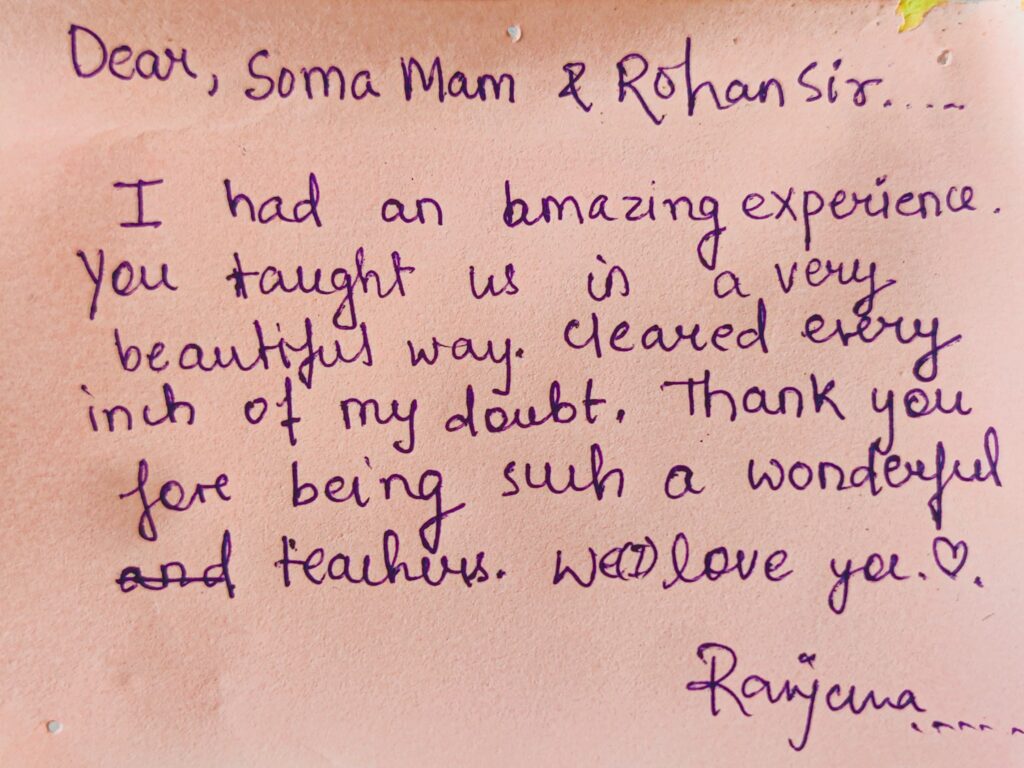 Dear, Soma Mam & Rohan Sir.....
I had an amazing experience.
You taught us in a very
beautiful way. Cleared every
inch of my doubt. Thank you
fore being such a wonderful
and teachers. We(I) love you.♡.
Ranjana.....